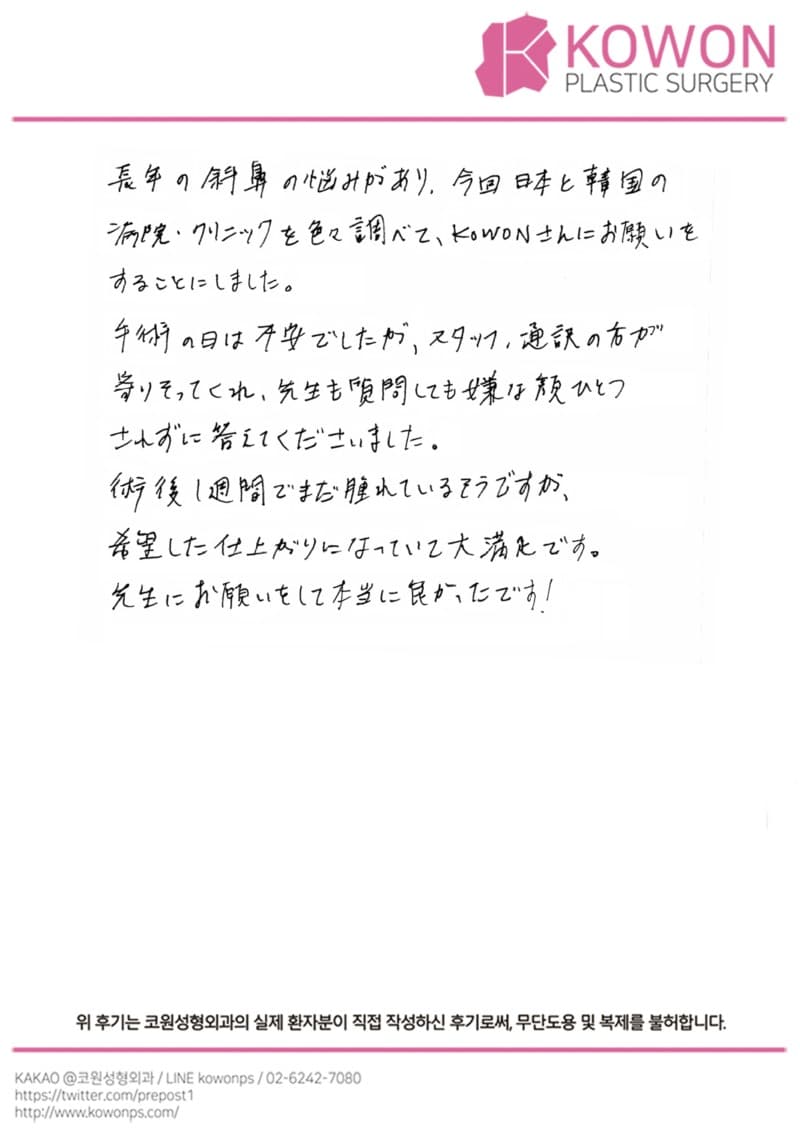 KOWON
PLASTIC SURGERY
長年の斜鼻の悩みがあり、今回日本と韓国の
病院・クリニックを色々調べて、KOWONさんにお願いを
することにしました。
手術の日は不安でしたが、スタッフ、通訳の方が
寄りそってくれ、先生も質問しても嫌な顔ひとつ
されずに答えてくださいました。
術後1週間でまだ腫れているそうですが、
希望した仕上がりになっていて大満足です。
先生にお願いをして本当に良かったです!
위 후기는 코원성형외과의 실제 환자분이 직접 작성하신 후기로써, 무단도용 및 복제를 불허합니다.
KAKAO @코원성형외과 / LINE kowonps / 02-6242-7080
https://twitter.com/prepost1
http://www.kowonps.com/